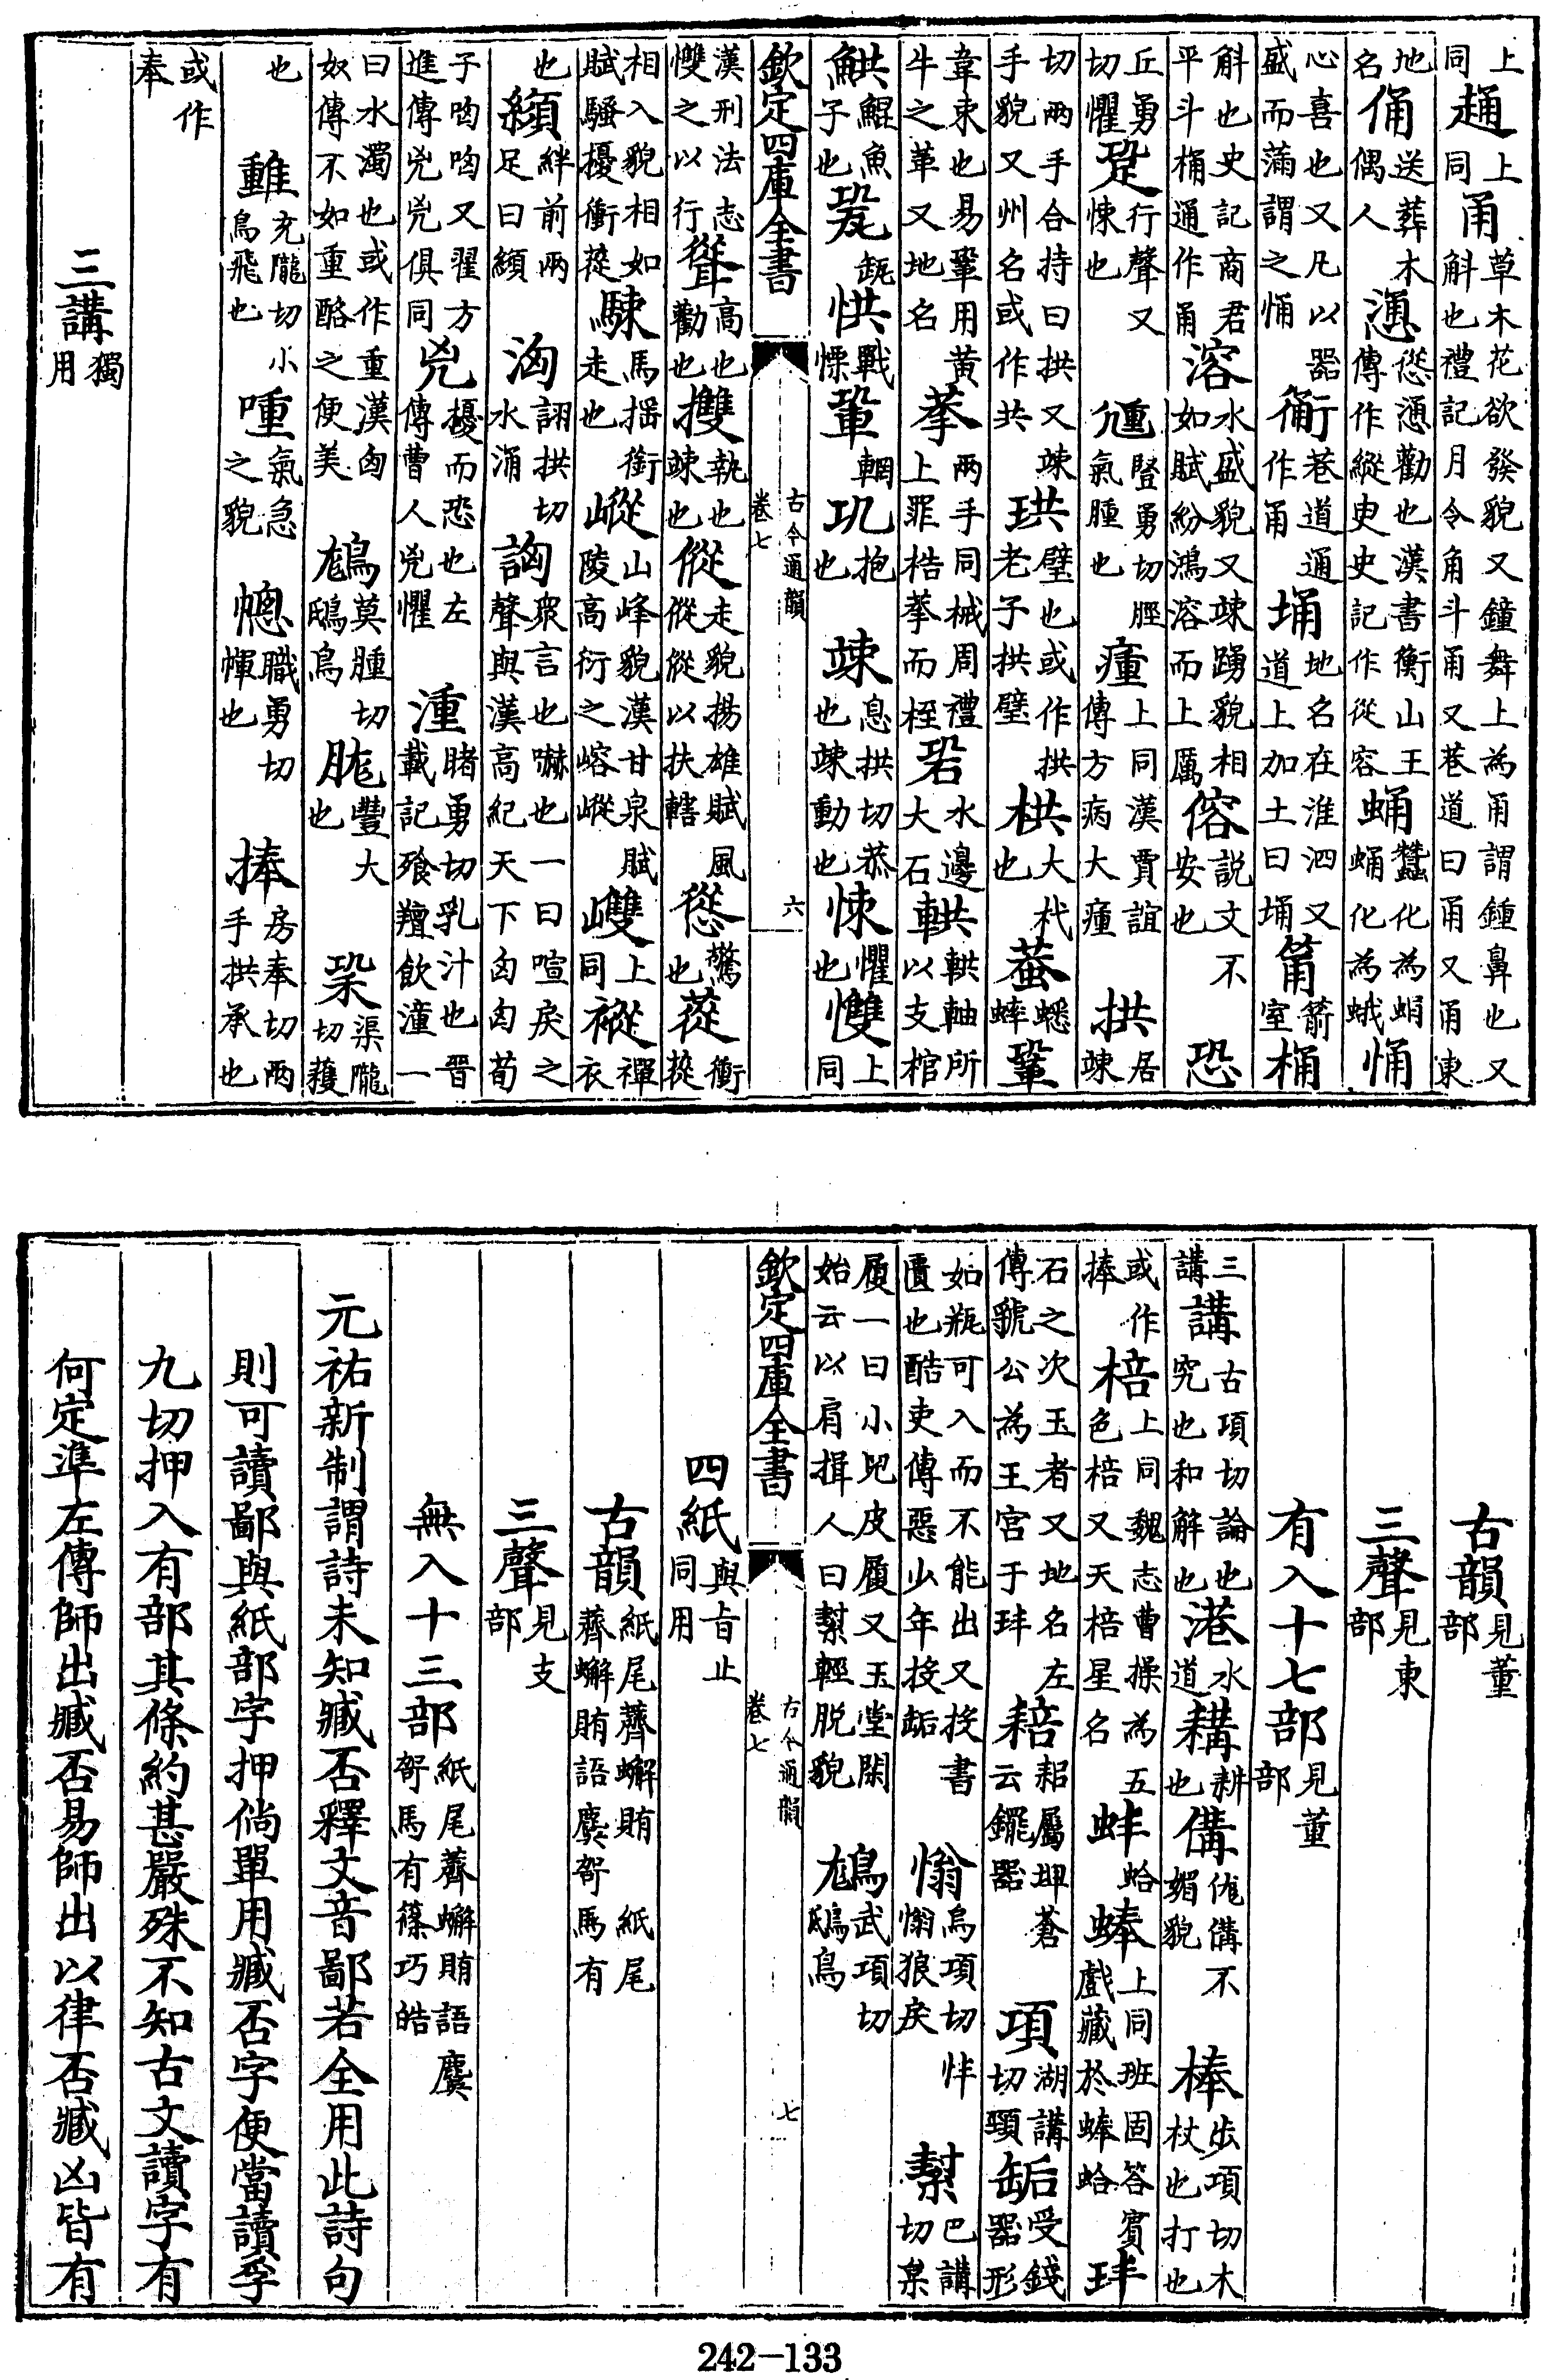 上同趰上同甬草木花欲發貌又鐘舞上為甬謂鍾鼻也又斛也禮記月令角斗甬又巷道曰甬又甬東
地名俑送葬木偶人慂慫慂勸也漢書衡山王傳作縱臾史記作從容蛹蠶化為蛹蛹化為蛾悀
心喜也又凡以器盛而滿謂之悀衕巷道通作甬埇地名在淮泗又道上加土曰埇筩箭室桶
斛也史記商君平斗桶通作甬溶水盛貌又竦踴貌相如賦紛鴻溶而上厲傛説文不安也恐
丘勇切懼跫行聲又悚也尰豎勇切脛氣腫也瘇上同漢賈誼傳方病大瘇拱居竦
切兩手合持曰拱又竦手貌又州名或作共珙璧也或作拱老子拱璧栱大杙也蛬蟋蟀鞏
韋束也易鞏用黃牛之革又地名拲兩手同械周禮上罪梏拲而桎碧水邊大石輁輁軸所以支棺
鯕鯤魚子也䂬瓾㤨戰慄輂輞巩抱也竦息拱切恭也竦動也悚懼也㩳上同
欽定四庫全書
古今通韻
卷七
六
漢刑法志㩳之以行聳高也勸也㩳執也竦也傱走貌揚雄賦風傱傱以扶轄慫驚也蓯衝蓯
相入貌相如賦騷擾衝蓯駷馬揺銜走也嵷山峰貌漢甘泉賦陵高衍之嵱嵷㟅上同𧛸襌衣
也䋶絆前兩足曰䋶洶詡拱切水涌訩衆言也嚇也一曰喧戾之聲與漢高紀天下匈匈荀
子哅哅又翟方進傳兇兇俱同兇擾而恐也左傳曹人兇懼湩睹勇切乳汁也晉載記飱羶飲湩一
曰水濁也或作重漢匈奴傳不如重酪之便美鳩莫腫切鴟鳥胧豐大也㭟渠隴切蘾
也𨿿充隴切小鳥飛也喠氣急之貌幒職勇切㡓也捧房奉切兩手拱承也
或作奉
三講獨用
古韻見董部
三聲見東部
有入十七部見董部
三講講古項切論也究也和解也港水道耩耕也傋㑨傋不媚貌棒步項切木杖也打也
或作捧棓上同魏志曹操為五色棓又天棓星名蚌蛤蜯上同班固答賓戲藏於蜯蛤玤
石之次玉者又地名左傳虢公為王宮于玤䎧耜屬埤蒼云䥯器項湖講切頸缿受錢器形
如瓶可入而不能出又投書匭也酷吏傳惡少年投缿慃烏項切慃愩狼戾㤓䋽巴講切枲
履一曰小兒皮履又玉堂閑始云以肩揖人曰䋽輕脱貌䳃武項切鴟鳥
欽定四庫全書
古今通韻
卷七
七
四紙與旨止同用
古韻紙尾薺蟹賄 紙尾薺蠏賄語麌哿馬有
三聲見支部
無入十三部紙尾薺蠏賄語麌哿馬有篠巧皓
元祐新制謂詩未知臧否釋文音鄙若全用此詩句
則可讀鄙與紙部字押倘單用臧否字便當讀孚
九切押入有部其條約甚嚴殊不知古文讀字有
何定準左傳師出臧否易師出以律否臧凶皆有
242-133